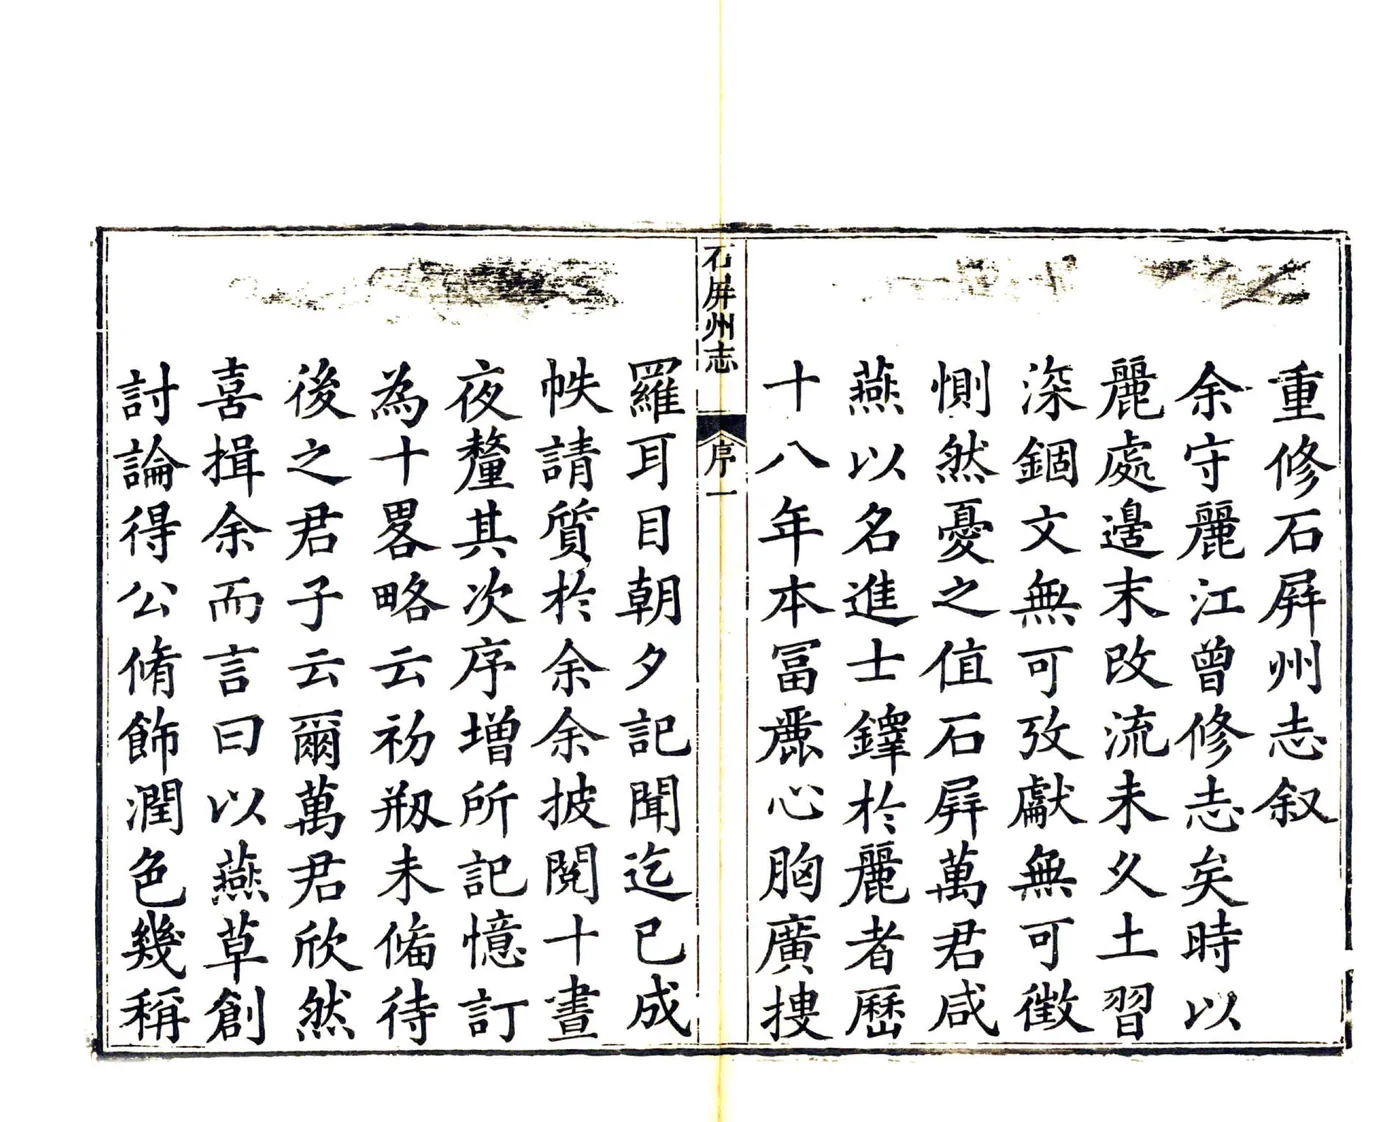 重修石屛州志叙
余守麗江曾修志矣時以
麗處邊末改流未久土習
深錮文無可攷獻無可徵
惻然憂之值石屛萬君咸
燕以名進士鐸於麗者歷
十八年本冨麗心胸廣摟
石屏州志
序一
羅耳目朝夕記聞迄已成
帙請質於余余披閱十晝
夜釐其次序增所記憶訂
為十畧略云初剏未俻待
後之君子云爾萬君欣然
喜揖余而言曰以燕草創
討論得公脩飾潤色幾稱